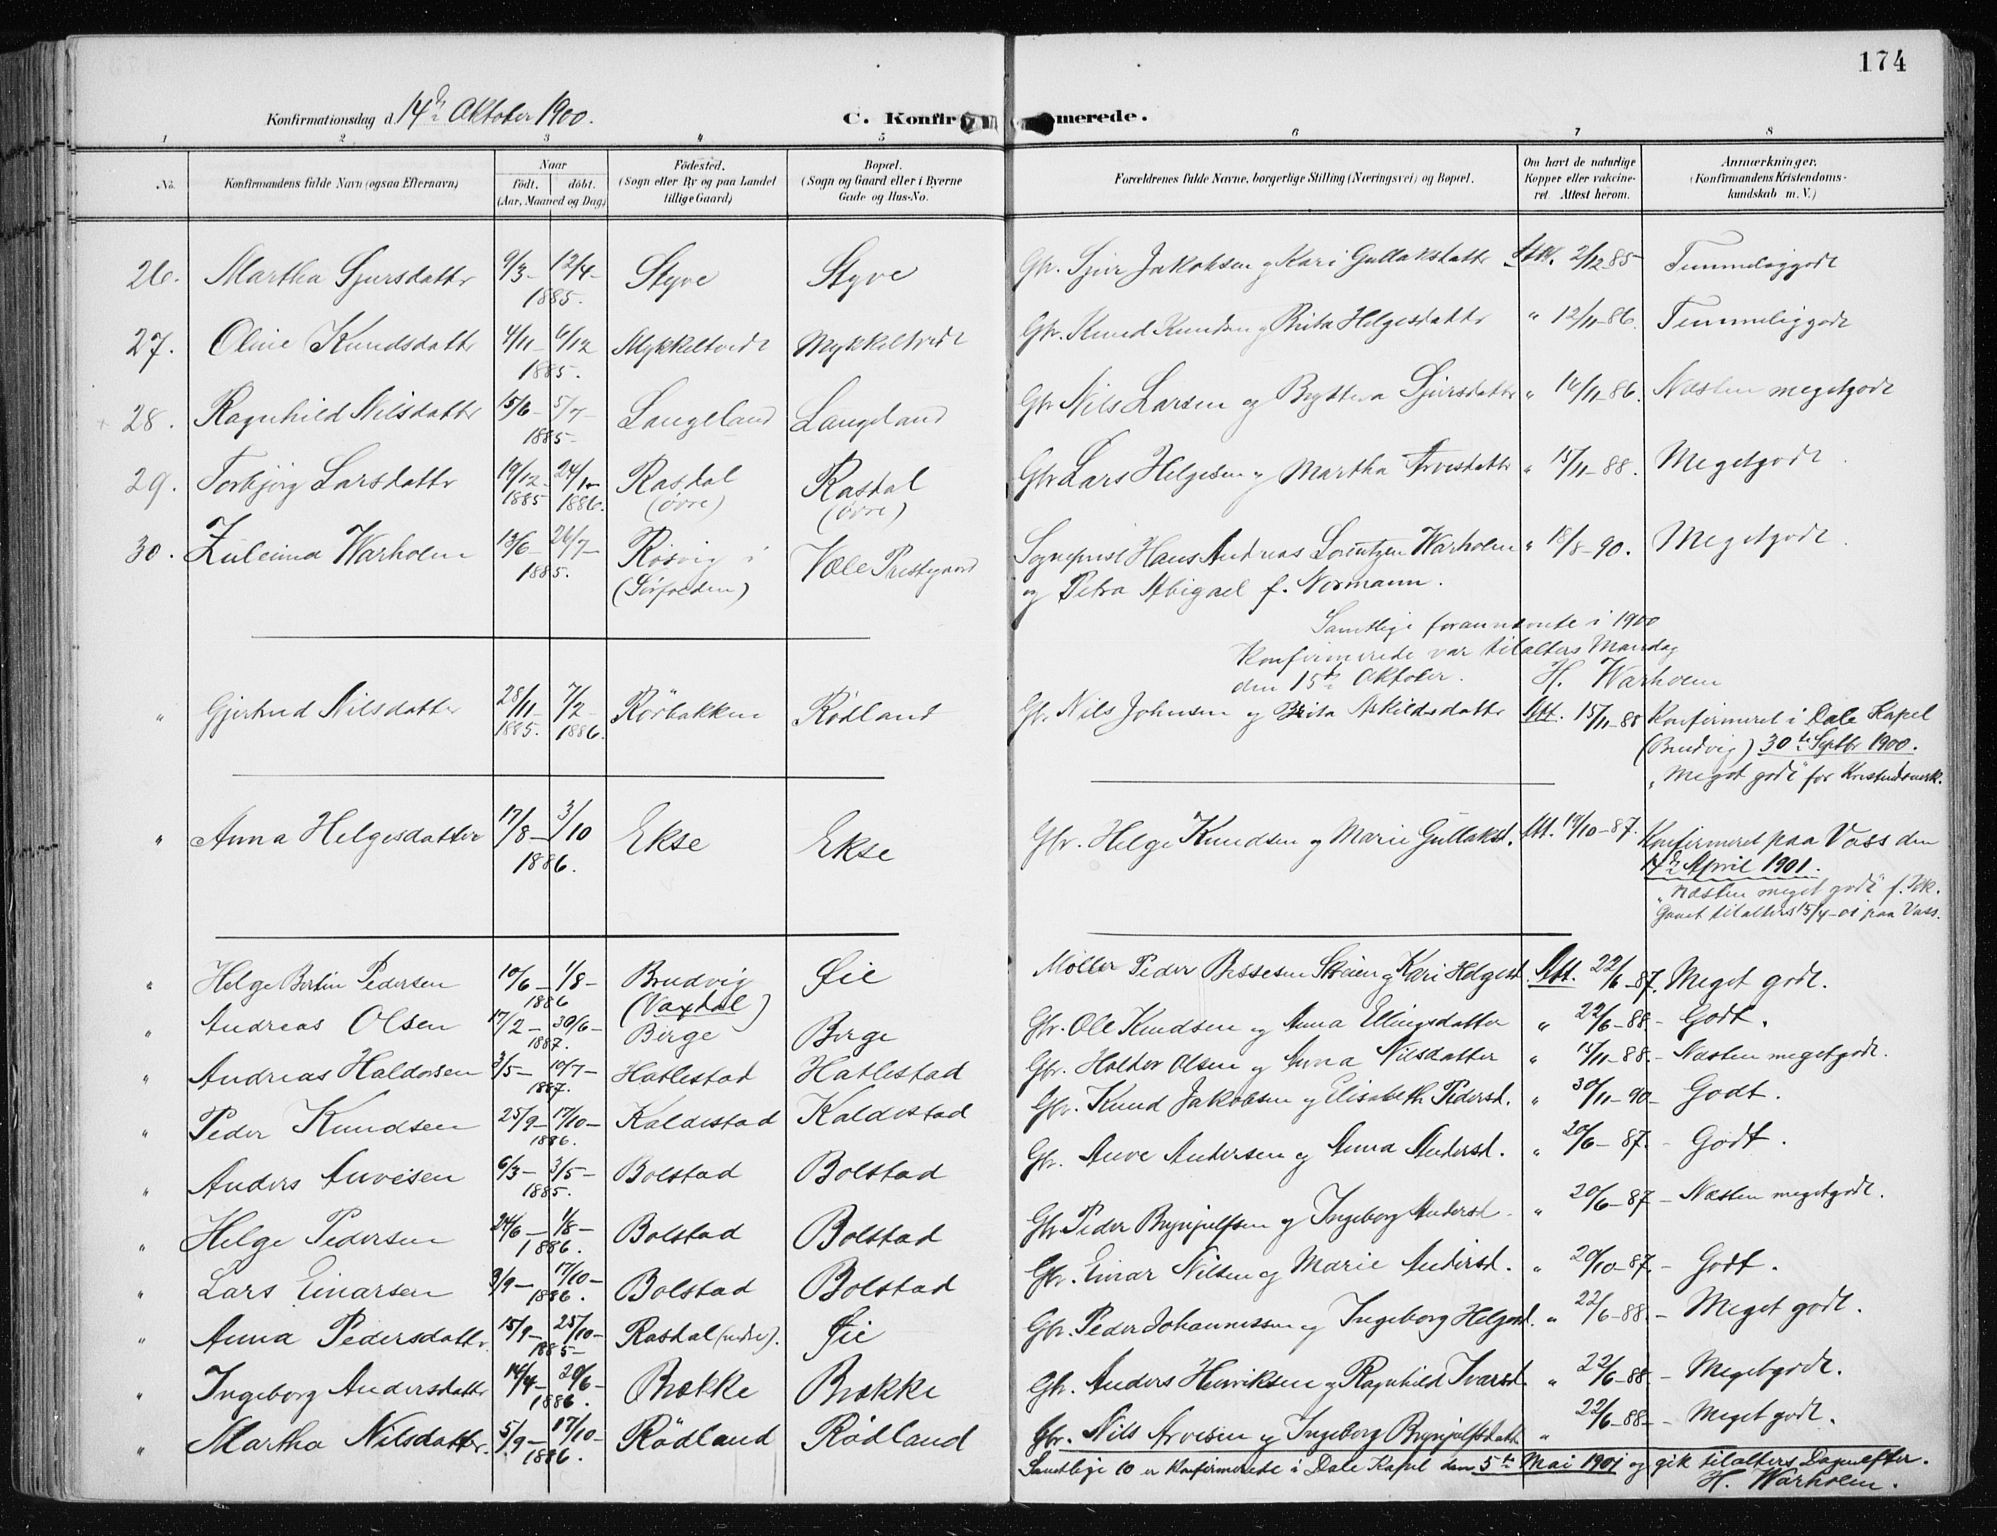 174
Konfirmationsdag d. 14de Oktober 1900.
C. Konfirmerede.
1 2 3 4 5 6 7 8
No. Konfirmandens fulde Navn (ogsaa Efternavn) Naar født. døbt. (Aar, Maaned og Dag) Fødested. (Sogn eller By og paa Landet tillige Gaard) Bopæl. (Sogn og Gaard eller i Byerne Gade og Hus-No. Forældrenes fulde Navne, borgerlige Stilling (Næringsvei) og Bopæl. Om havt de naturlige Kopper eller vakcineret. Attest herom. Anmærkninger. (Konfirmandens Kristendomskundskab m. V.)
26. Martha Sjursdatter 9/3- 12/4- 1885. Styve Styve Gbr. Sjur Jakobsen og Kari Gullaksdatter Att. 2/12 85 Temmelig godt
27. Oline Knudsdatter 4/11- 6/12 1885. Mykkeltvedt Mykkeltvedt Gbr. Knud Knudsen og Brita Helgesdatter " 12/11-86. Temmelig godt
28. Ragnhild Nilsdatter 15/6- 5/7- 1885- Langeland Langeland Gbr Nils Larsen og Brytteva Sjursdatter " 14/11-86. Næsten meget godt
29. Torbjørg Larsdatter 19/12 1885 24/1- 1886. Rasdal (øvre) Rasdal (øvre) Gbr Lars Helgesen og Martha Arvesdatter " 15/11-88. Meget godt.
30. Zuleima Warholm 13/6- 26/7- 1885. Røsvig i (Sørfolden) Vole Prestegaard Sogneprest Hans Andreas Lorentzen Warholm " 18/8-90. Meget godt.
og Petra Abigael f. Normann.
Samtlige forannævnte i 1900
Konfirmerede var tilalters Mandag
den 15de Oktober. H. Warholm
" Gjertrud Nilsdatter 28/11- 1885. 7/2- 1886. Rörbakken Rødland Gbr. Nils Johnsen og Brita Askildsdatter Att. 15/11-88 Konfirmeret i Dale Kapel
(Brudvig) 30te Septbr 1900.
"Meget godt" for Kristendomsk.
" Anna Helgesdatter 17/8- 3/10 1886. Ekse Ekse Gbr. Helge Knudsen og Marie Gullaksd. Att. 19/10-87. Konfirmeret paa Voss den
14de April 1901.
"Næsten meget godt" f. Kdk.
Gaaet tilalters 15/4-01 paa Voss.
" Helge Bertin Pedersen 10/6- 1/8- 1886 Brudvig (Vaxdal) Øie Møller Peder Bessesen Skeien og Kari Helgesd. Att. 22/6-87. Meget godt.
" Andreas Olsen 17/2- 30/6- 1887. Birge Berge Gbr. Ole Knudsen og Anna Ellingsdatter " 22/6-88- Godt.
" Andreas Haldorsen 3/5- 10/7- 1887. Hatlestad Hatlestad Gbr. Haldor Olsen og Anna Nilsdatter " 15/11-88- Næsten meget godt.
" Peder Knudsen 25/9- 17/10- 1886. Kaldestad Kaldestad Gbr. Knud Jakobsen og Elisabeth Pedersd. " 30/11-90- Godt.
" Anders Anvesen 6/3- 3/5- 1885. Bolstad Bolstad Gbr. Anve Andersen og Anna Andersd. " 20/6-87- Godt.
" Helge Pedersen 24/6- 1/8- 1886. Bolstad Bolstad Gbr Peder Brynjulfsen og Ingeborg Andersd. " 20/6-87- Næsten meget godt.
" Lars Einarsen 3/9- 17/10- 1886. Bolstad Bolstad Gbr. Einar Nilsen og Marie Andersd. " 20/10-87- Godt.
" Anna Pedersdatter 15/9- 25/10- 1885- Rasdal (nedre). Øie Gbr. Peder Johannessen og Ingeborg Helgesd. " 22/6-88- Meget godt.
" Ingeborg Andersdatter 14/4- 20/6- 1886. Brække Brække Gbr. Anders Henriksen og Ragnhild Ivarsd. " 22/6-88- Meget godt.
" Martha Nilsdatter. 5/9- 17/10- 1886. Rødland Rødland Gbr. Nils Arvesen og Ingeborg Brynjulfsdatt. " 22/6-88- Meget godt.
Samtlige 10 er Konfirmerede i Dale Kapel den 5te Mai 1901 og gik tilalters Dagen efter.
H. Warholm.